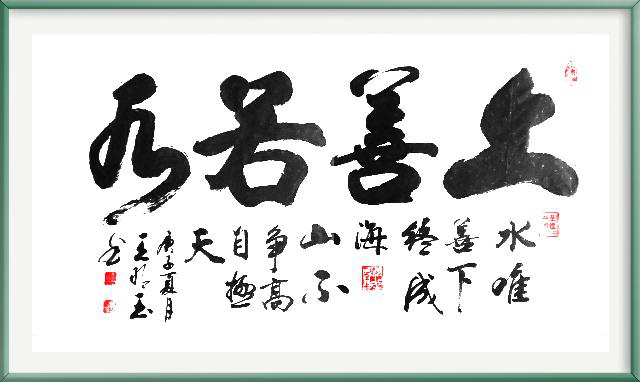 上善若水
水唯
善下
終成
海
山不
争高
自極
天
庚子夏月
王玉
书